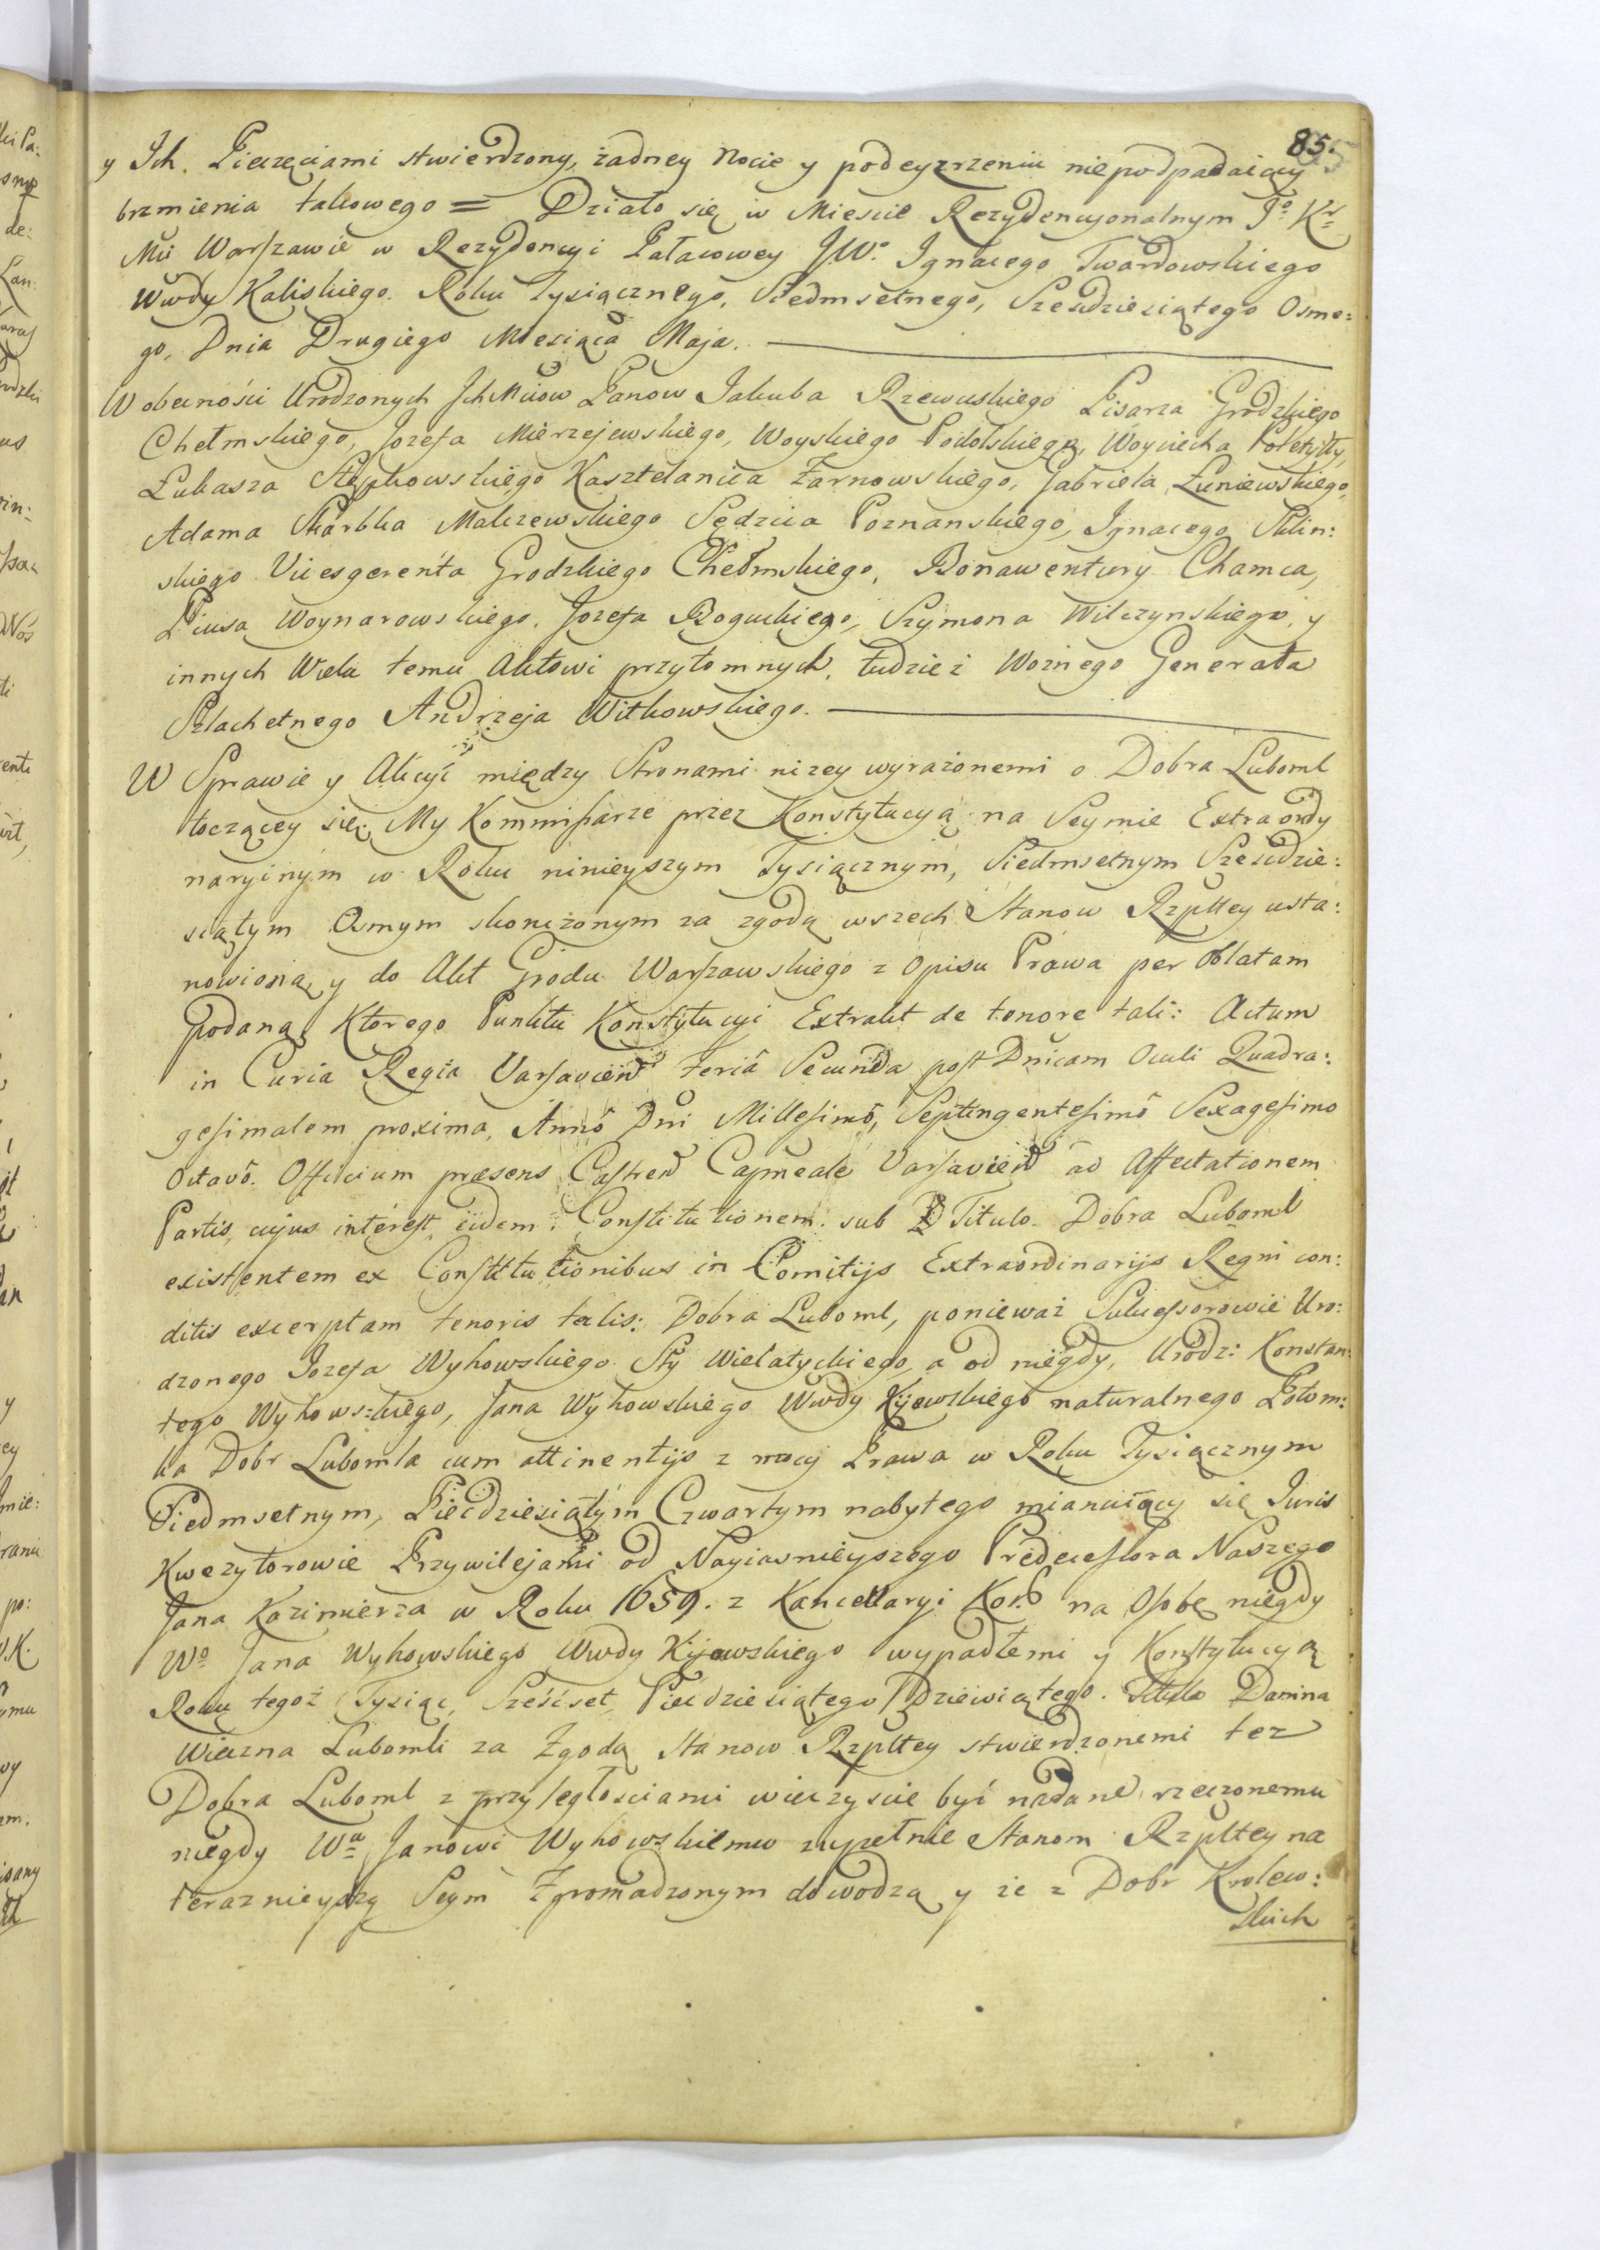 85.
y Ich. Pieczęciami stwierdzony, żadney Nocie y podeyzrzeniu niepodpadaiący
brzmienia takowego = Działo się w Mieście Rezydencyonalnym Jo Kr
Mci Warszawie w Rezydencyi Pałacowey JW. Ignacego Twardowskiego
Wwdy Kaliskiego. Roku Tysiącznego, Siedmsetnego, Szesdziesiątego Osme:
go, Dnia Drugiego Miesiąca Maja.
W obecności Urodzonych Ich Mciow Panow Jakuba Rzewuskiego Pisarza Grodzkiego
Chełmskiego, Jozefa Mierzejewskiego, Woyskiego Podolskiego, Woyciecha Poletyłły,
Łukasza Stępkowskiego Kasztelanica Żarnowskiego, Gabriela Łuniewskiego,
Adama Skarbka Malczewskiego Sędzica Poznanskiego, Ignacego Sklin:
skiego Vicesgerenta Grodzkiego Chełmskiego, Bonawentury Chamca,
Piusa Woynarowskiego, Jozefa Boguckiego, Szymona Wilczynskiego, y
innych Wielu temu Aktowi przytomnych, tudzież Woźnego Generała
Szlachetnego Andrzeja Witkowskiego.
W Sprawie y Akcyi między Stronami niżey wyrażonemi o Dobra Luboml
toczącey się, My Kommissarze przez Konstytucyą na Seymie Extraordy
naryinym w Roku ninieyszym Tysiącznym, Siedmsetnym Szesdzie:
siątym Osmym skonczonym za zgodą wszech Stanow Rzpltey usta:
nowioną y do Akt Grodu Warszawskiego z opisu Prawa per Oblatam
podaną, Ktorego Punktu Konstytucyi Extrakt de tenore tali: Actum
in Curia Regia Varsavien Feriâ Secunda post Dnicam Oculi Quadra:
gesimalem proxima, Annô Dni Millesimô, Septingentesimô Sexagesimo
Octavô. Officium præsens Castren Capneale Varsavien ad Affectationem
Partis, cujus interest, eidem Constitutionem sub Titulo Dobra Luboml
existentem ex Constitutionibus in Comitijs Extraordinarijs Regni con:
ditis excerptam tenoris talis: Dobra Luboml, ponieważ Sukcessorowie Uro:
dzonego Jozefa Wyhowskiego Sty Wielatyckiego, a od niegdy, Urodz: Konstan:
tego Wyhowskiego, Jana Wyhowskiego Wwdy Kijowskiego naturalnego Potom:
ka Dobr Lubomla cum attinentijs z mocy Prawa w Roku Tysiącznym
Siedmsetnym, Pięćdziesiątym Czwartym nabytego mianuiący się Juris
Kwezytorowie Przywilejami od Nayiasnieyszego Predecessora Naszego
Jana Kazimierza w Roku 1659. z Kancellaryi Kor: na Osobę niegdy
Wo Jana Wyhowskiego Wwdy Kijowskiego wypadłemi y Konstytucyą
Roku tegoż Tysiąc, Sześćset, Pięcdziesiątego Dziewiątego. Titulo Danina
Wieczna Lubomli za Zgodą Stanow Rzpltey stwierdzonemi tez
Dobra Luboml z przyległościami wieczyscie być nadane rzeczonemu
niegdy Wu Janowi Wyhowskiemu zupełnie Stanom Rzpltey na
teraznieyszy Seym Zgromadzonym dowodzą y że z Dobr Krolew:
skich